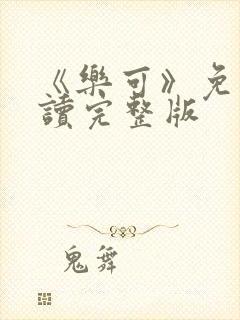 《樂可》免
讀完整版
鬼舞